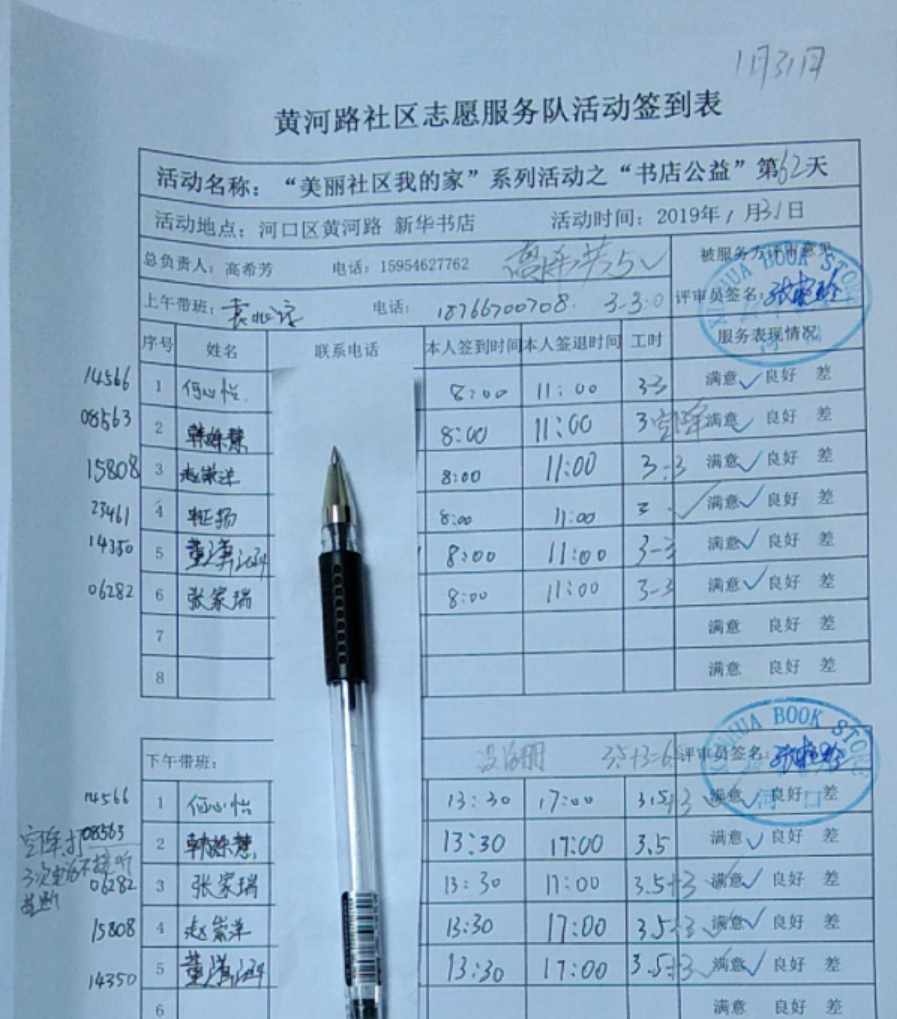 1月31日
黄河路社区志愿服务队活动签到表
活动名称：“美丽社区我的家”系列活动之“书店公益”第62天
活动地点：河口区黄河路 新华书店 活动时间：2019年1月31日
总负责人：高希芳 电话：15954627762 高希芳5 被服务方评审意见
上午带班： 电话：18766700708 3-3=0 评审员签名：
XINHUA BOOK STORE
序号 姓名 联系电话 本人签到时间 本人签退时间 工时 服务表现情况
14566 1 何心怡 8:00 11:00 3-3 满意✓ 良好 差
08563 2 8:00 11:00 3 满意✓ 良好 差
15808 3 赵崇洋 8:00 11:00 3-3 满意✓ 良好 差
23461 4 8:00 11:00 3 满意✓ 良好 差
14350 5 8:00 11:00 3-3 满意✓ 良好 差
06282 6 张家瑞 8:00 11:00 3-3 满意✓ 良好 差
7 满意 良好 差
8 满意 良好 差
XINHUA BOOK STORE
河口
下午带班： 没注册 3.5+3=6 评审员签名：
14566 1 何心怡 13:30 17:00 3.5+3 满意✓ 良好 差
08563 2 13:30 17:00 3.5 满意✓ 良好 差
06282 3 张家瑞 13:30 17:00 3.5+3 满意✓ 良好 差
15808 4 赵崇洋 13:30 17:00 3.5+3 满意✓ 良好 差
14350 5 13:30 17:00 3.5+3 满意✓ 良好 差
6 满意 良好 差
3次电话不接听